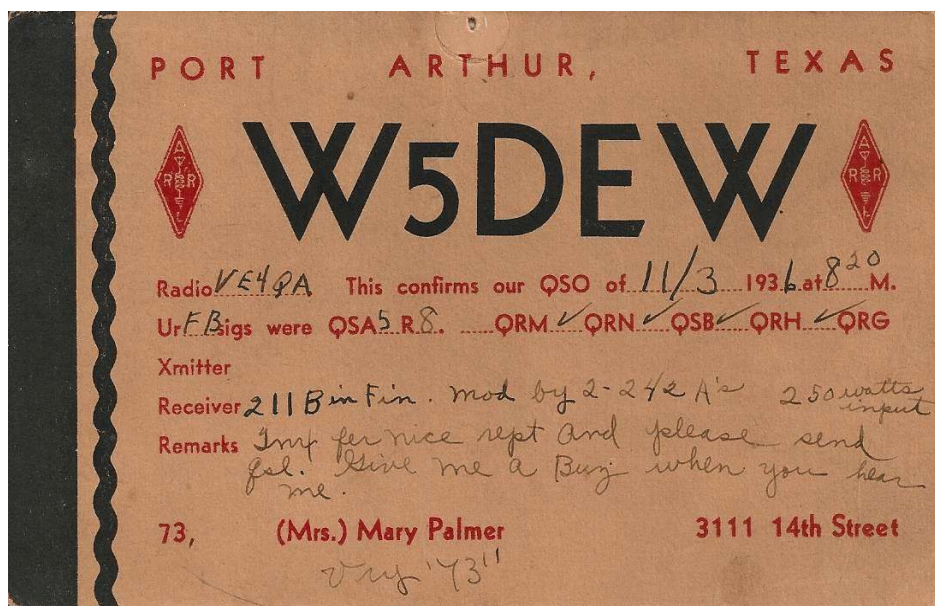 PORT ARTHUR, TEXAS
W5DEW
A R R L A R R L
Radio VE4QA This confirms our QSO of 11/3 1936 at 8 20 M.
Ur FB sigs were QSA 5 R 8. QRM ✓ QRN ✓ QSB ✓ QRH ✓ QRG
Xmitter
Receiver 211B in Fin. Mod by 2-242A's 250 watts
input
Remarks Tnx fer nice rept and please send
Qsl. Give me a Buz when you hear
me.
73, (Mrs.) Mary Palmer 3111 14th Street
Vry "73"